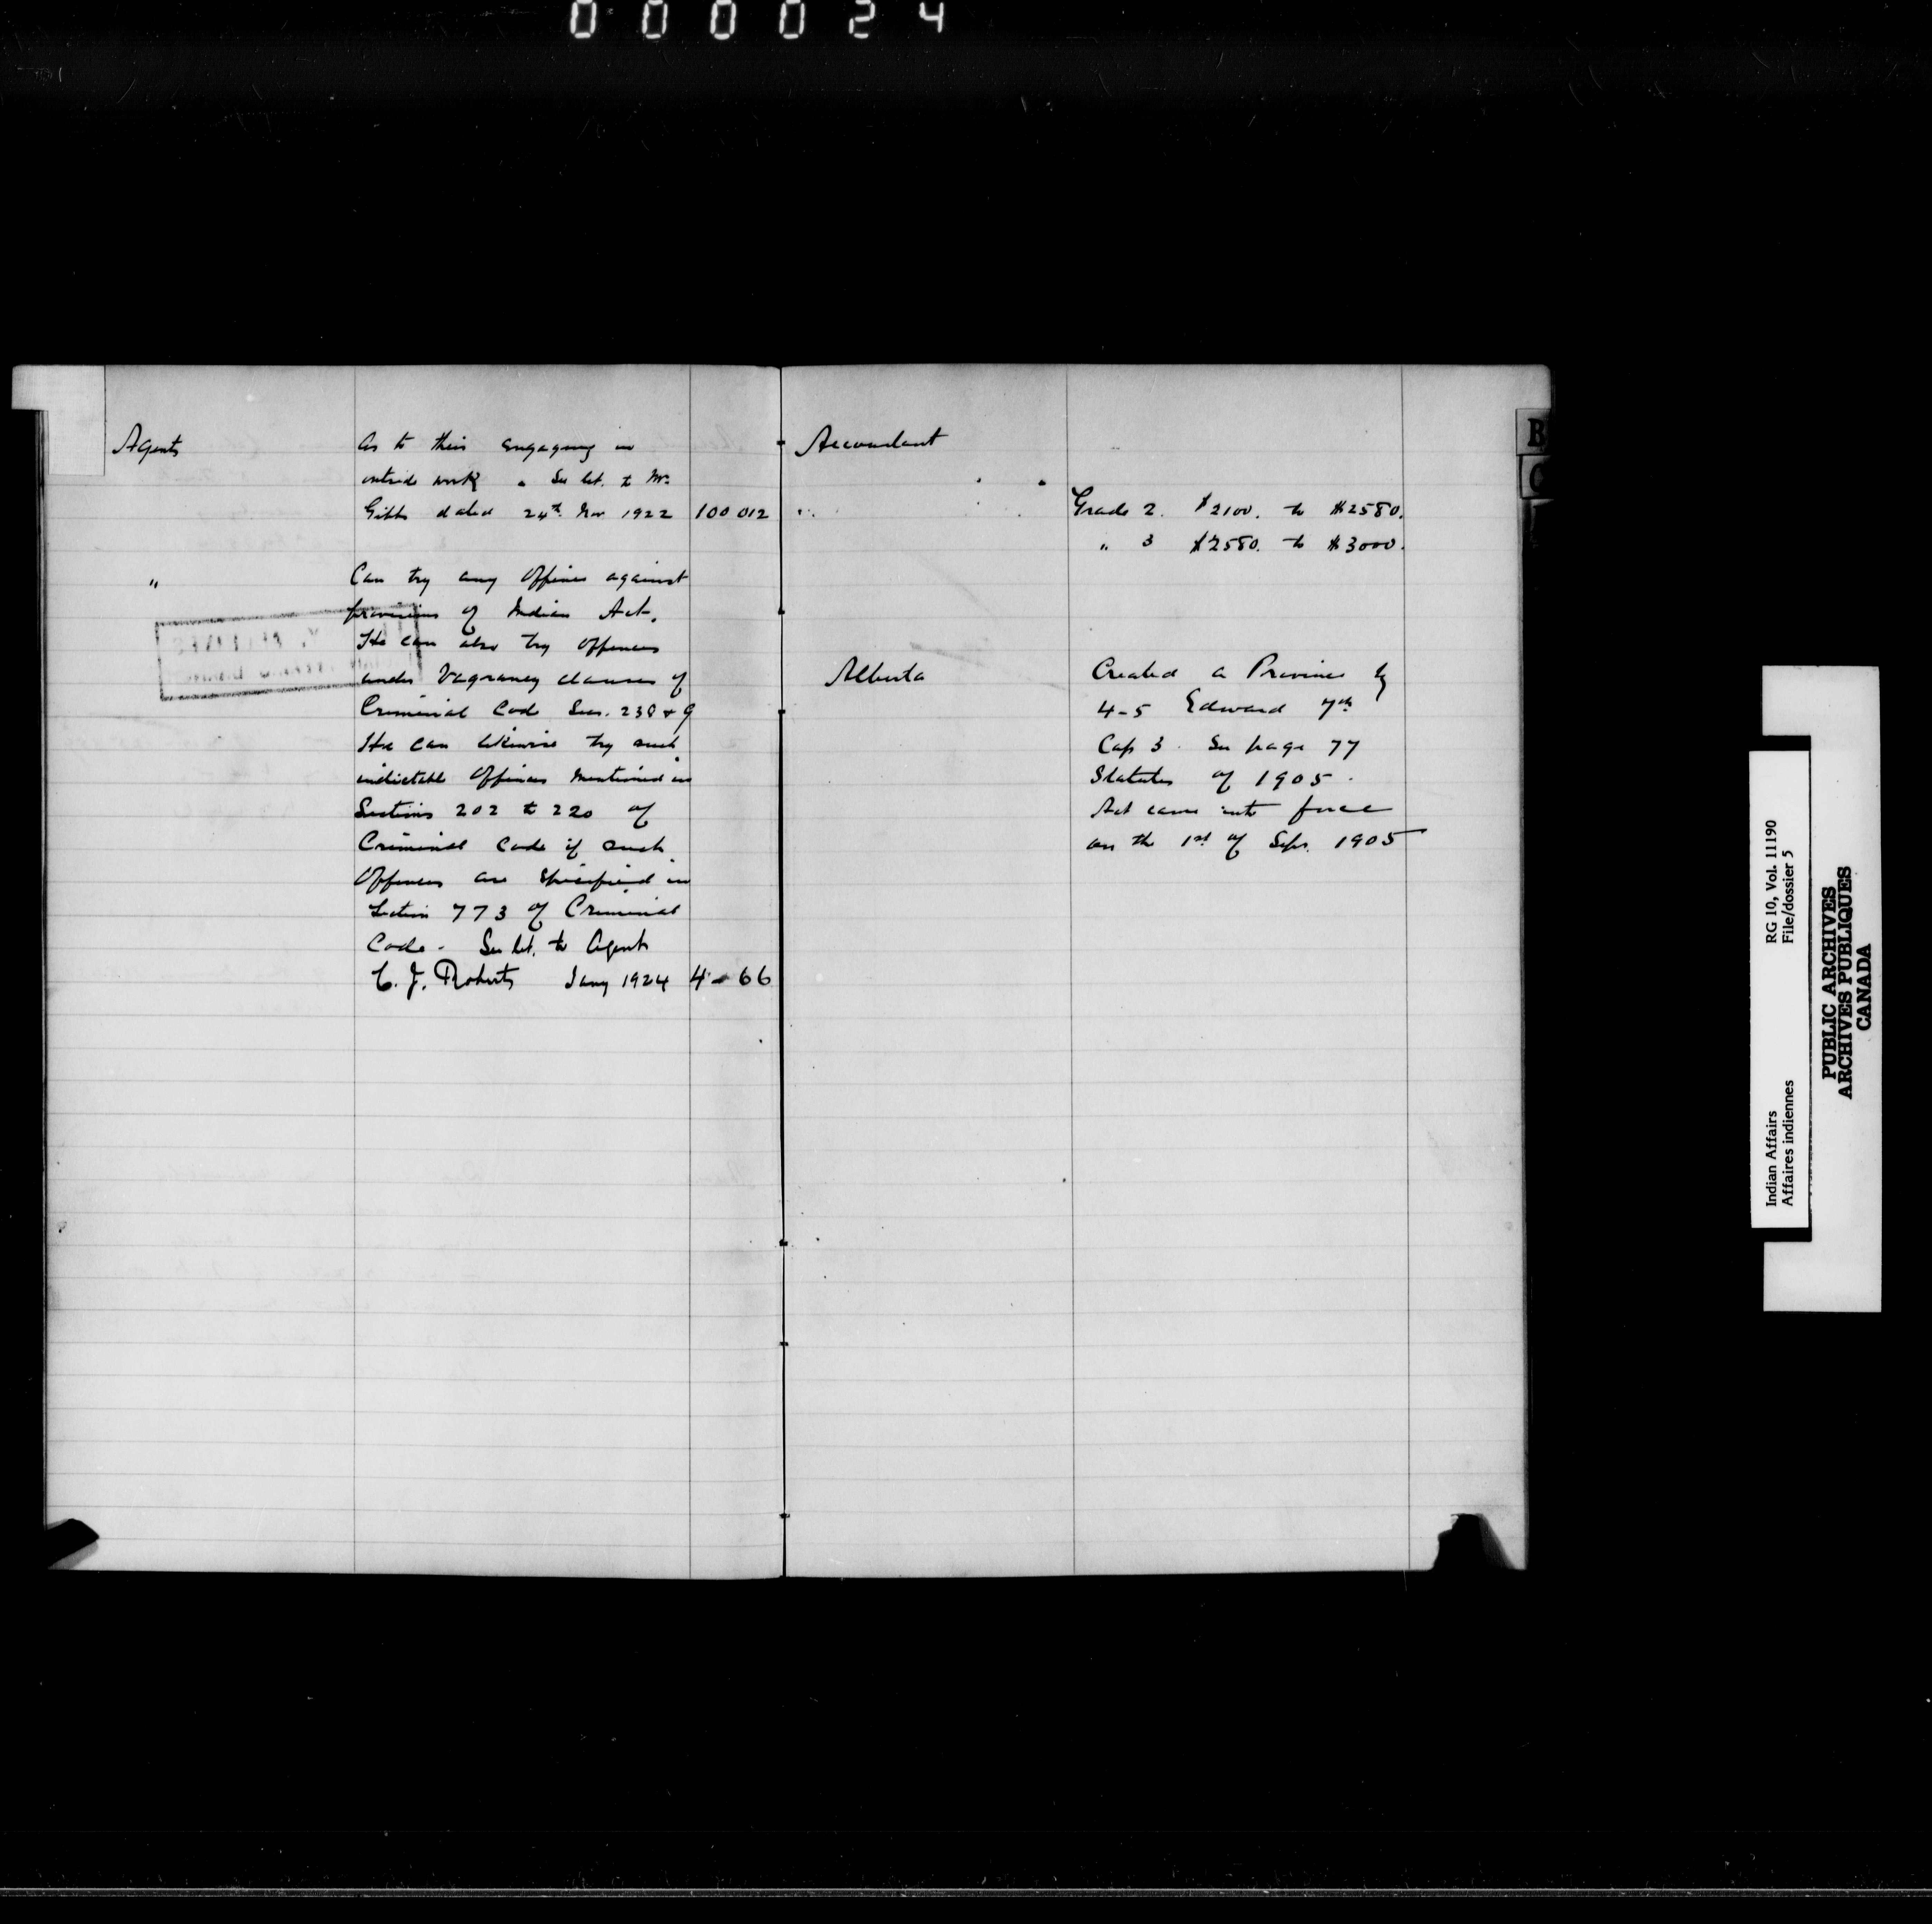 000024
Agents
As to their engaging in
outside work. See let. to Mr.
Gibbs dated 24th Nov 1922 100 012
" Can try any Offence against
provisions of Indian Act.
He can also try Offences
under Vagrancy clauses of
Criminal Code Secs. 238 & 9
He can likewise try such
indictable Offences mentioned in
Sections 202 to 220 of
Criminal Code if such
Offences are specified in
Section 773 of Criminal
Code - See let. to Agent
C. J. Roberts Jany 1924 4-66
Accountant
Grade 2. $2100. to $2580.
" 3 $2580. to $3000.
Alberta
Created a Province by
4-5 Edward 7th
Cap 3. See page 77
Statutes of 1905.
Act came into force
on the 1st of Sept. 1905
B
C
Indian Affairs RG 10, Vol. 11190
Affaires indiennes File/dossier 5
PUBLIC ARCHIVES
ARCHIVES PUBLIQUES
CANADA